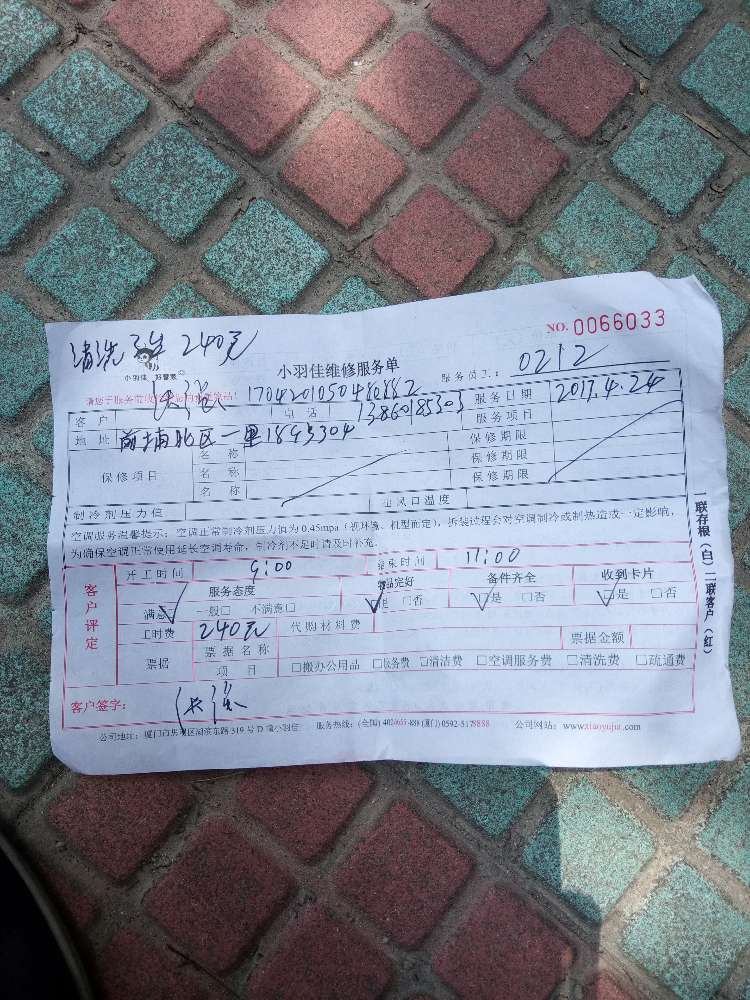 清洗 240元
NO. 0066033
小羽佳 好管家
小羽佳维修服务单
服务员工: 0212
1704201050480882
客户 电话 13860185303 服务日期 2017.4.24
地址 前埔北区一里 服务项目
保修项目 名称 保修期限
名称 保修期限
名称 保修期限
制冷剂压力值 出风口温度
空调服务温馨提示: 空调正常制冷剂压力值为 0.45mpa (视环境、机型而定), 拆装过程会对空调制冷或制热造成一定影响,
为确保空调正常使用延长空调寿命, 制冷剂不足时请及时补充.
客户评定
开工时间 9:00 结束时间 11:00
服务态度 物品完好 备件齐全 收到卡片
满意 一般□ 不满意□ 是 □否 □是 □否 □是 □否
工时费 240元 代购材料费
票据 票据名称 票据金额
项目 □搬办公用品 □服务费 □清洁费 □空调服务费 □清洗费 □疏通费
客户签字:
公司地址: 厦门市思明区湖滨东路 319 号 D 幢小羽佳 服务热线: (全国) (厦门) 0592-5178888 公司网站: www.xiaoyujia.com
一联存根 (白) 二联客户 (红)